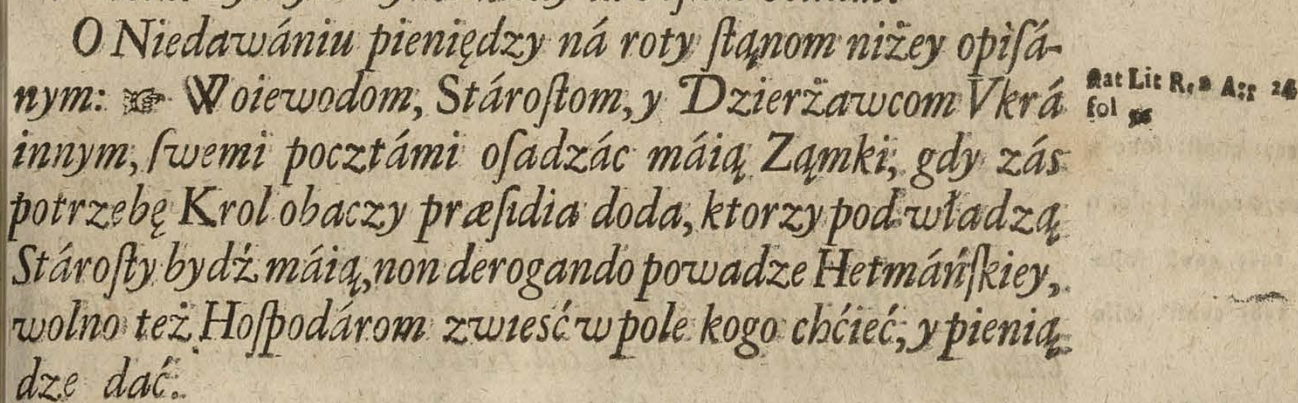 O Niedawániu pieniędzy ná roty ſtąnom niżey opiſá-
nym: ☞ Woiewodom, Stároſtom, y Dzierżawcom Vkrá
innym, ſwemi pocztámi oſadzác máią Ząmki, gdy zás
potrzebę Krol obaczy præſidia doda, ktorzy pod władzą
Stároſty bydź máią, non derogando powadze Hetmáńſkiey,
wolno też Hoſpodárom zwieść w pole kogo chćieć, y pienią
dze dać.
Lit R, A:r 24
fol